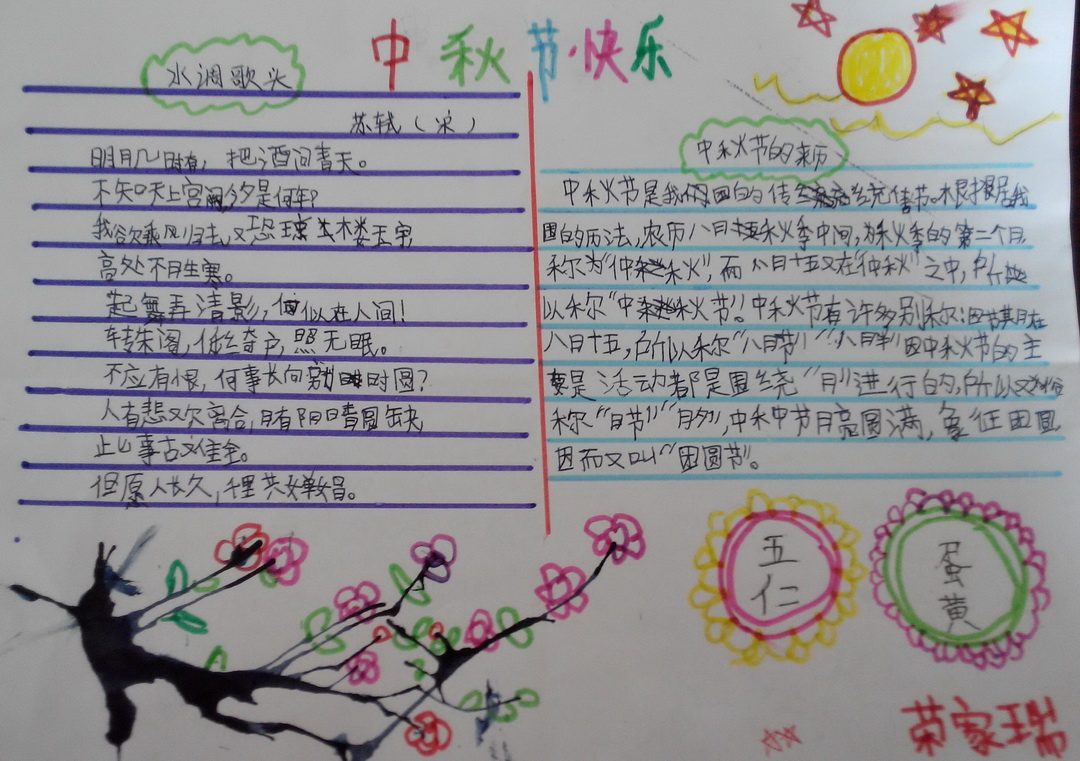 中秋节·快乐
水调歌头
苏轼（宋）
明月几时有，把酒问青天。
不知天上宫阙，今夕是何年？
我欲乘风归去，又恐琼
高处不胜寒。
起舞弄清影，何似在人间！
转朱阁，低绮户，照无眠。
不应有恨，何事长向别时圆？
人有悲欢离合，月有阴晴圆缺，
此事古难全。
但愿人长久，千里共婵娟。
中秋节的来历
中秋节是我们国的传统佳节。根据我
国的历法，农历八月在秋季中间，为秋季的第二个月，
称为“仲秋”，而八月十五又在“仲秋”之中，所
以称“中秋节”。中秋节有许多别称：因节期在
八月十五，所以称“八月节”“八月半”因中秋节的主
要是活动都是围绕“月”进行的，所以又
称“月节”“月夕”，中秋节月亮圆满，象征团圆
因而又叫“团圆节”。
五仁
蛋黄
荣家瑞